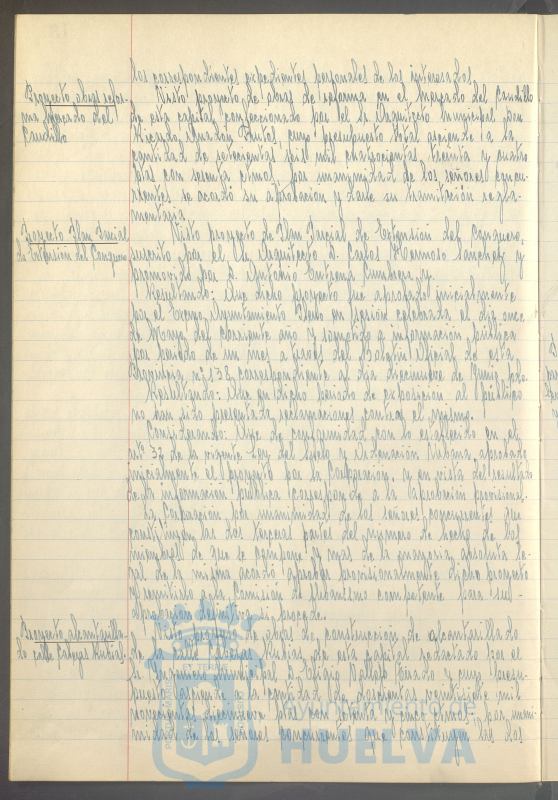 los correspondientes expedientes personales de los interesados.
Proyecto obras refor-
ma Mercado del
Caudillo
Visto proyecto de obras de reforma en el Mercado del Caudillo
de esta capital confeccionado por el Sr. Arquitecto Municipal Don
Ricardo, cuyo presupuesto total asciende a la
cantidad de setecientas seis mil cuatrocientas treinta y cuatro
ptas con sesenta ctmos, por unanimidad de los señores concu-
rrentes se acordó su aprobación y darle su tramitación regla-
mentaria.
Proyecto Plan Parcial
de Extensión del Conquero
Visto proyecto de Plan Parcial de Extensión del Conquero,
suscrito por el Sr. Arquitecto D. Carlos Hermoso Sanchez y
promovido por D. Antonio y
Resultando: Que dicho proyecto fue aprobado inicialmente
por el Excmo. Ayuntamiento Pleno en sesión celebrada el día once
de Mayo del corriente año y sometido a información pública
por periodo de un mes a través del Boletín Oficial de esta
Provincia nº 138 correspondiente al día diecinueve de Junio pdo.
Resultando: Que en dicho periodo de exposición al público
no han sido presentadas reclamaciones contra el mismo.
Considerando: Que de conformidad con lo establecido en el
artº 32 de la vigente Ley del Suelo y Ordenación Urbana, aprobado
inicialmente el proyecto por la Corporación, y en vista del resultado
de la información pública corresponde a la aprobación provisional.
La Corporación por unanimidad de los señores concurrentes que
constituyen las dos terceras partes del número de hecho de los
miembros de que se compone y mas de la mayoria absoluta le-
gal de la misma acordó aprobar provisionalmente dicho proyecto
y remitirlo a la Comisión de Urbanismo competente para su
aprobación definitiva si procede.
Proyecto alcantarilla-
do calle Cabezas Rubias
Visto proyecto de obras de construcción de alcantarillado
de la calle Cabezas Rubias, de esta capital redactado por el
Sr. Ingeniero Municipal D. y cuyo presu-
puesto asciende a la cantidad de doscientas veintiseis mil
novecientas diecinueve ptas con treinta y cinco ctmos, por unani-
midad de los señores concurrentes que constituyen las dos
Ayuntamiento de
HUELVA